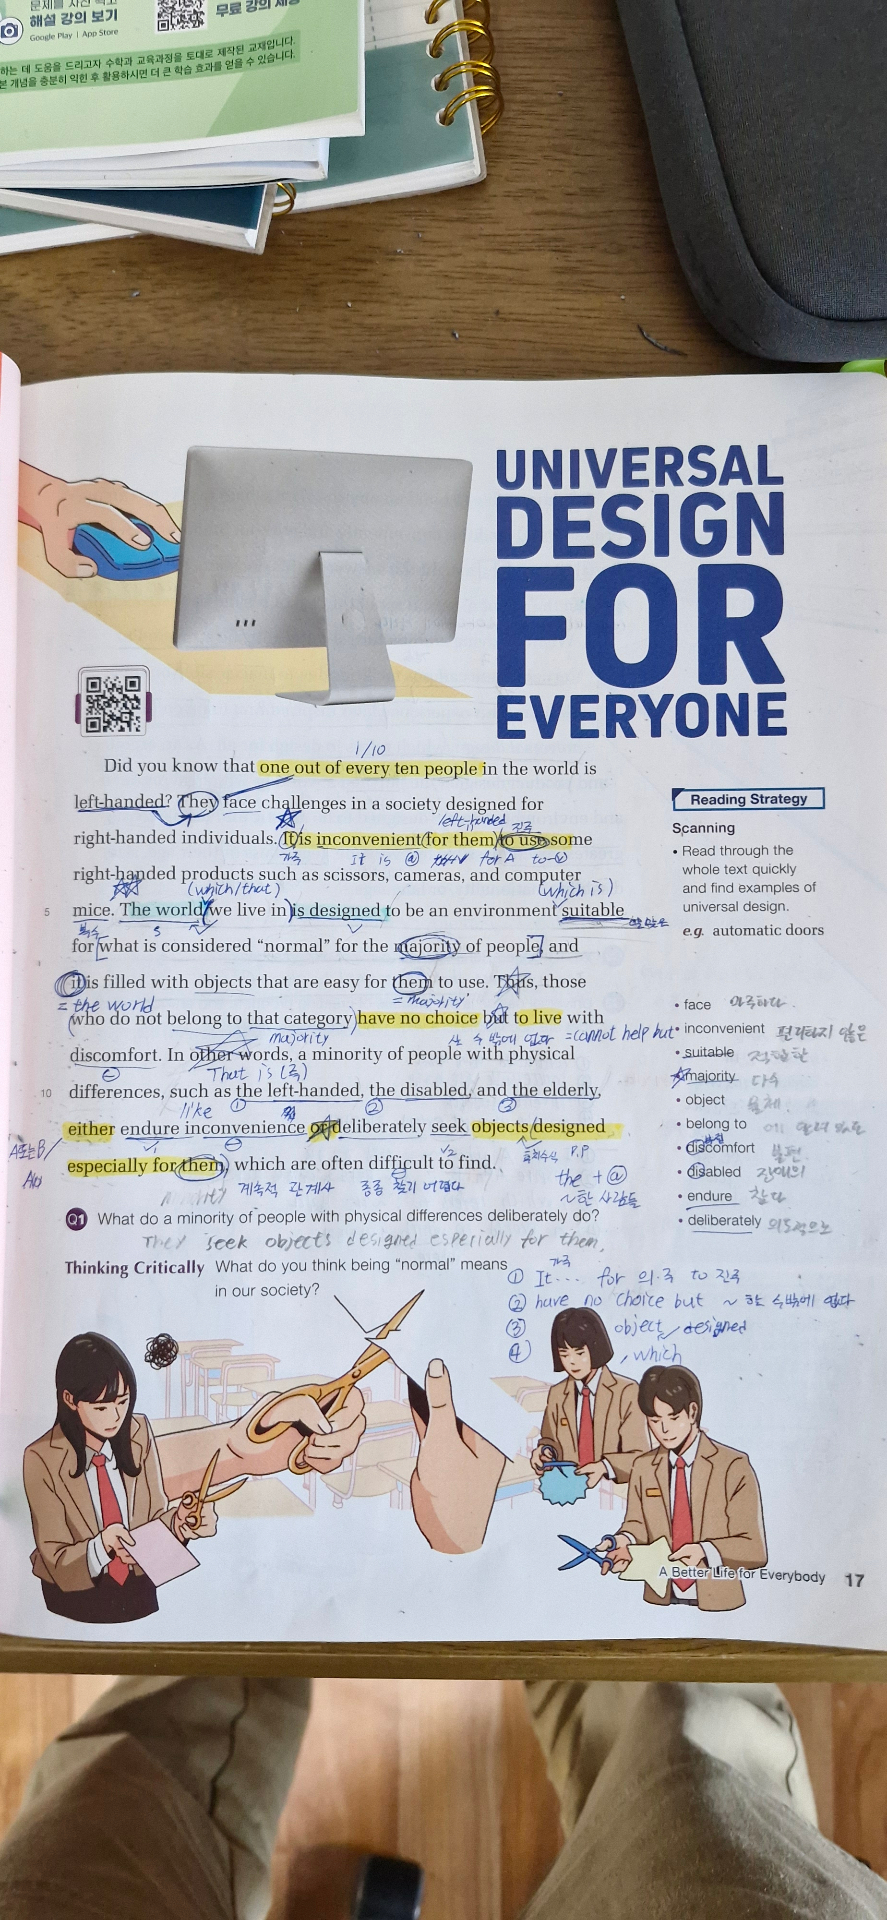 문제를 사진 찍고
해설 강의 보기
Google Play | App Store
무료 강의
하는 데 도움을 드리고자 수학과 교육과정을 토대로 제작된 교재입니다.
본 개념을 충분히 익힌 후 활용하시면 더 큰 학습 효과를 얻을 수 있습니다.
UNIVERSAL
DESIGN
FOR
EVERYONE
1/10
Did you know that one out of every ten people in the world is
left-handed? They face challenges in a society designed for
left-handed 진주
right-handed individuals. It is inconvenient for them to use some
가주 It is ⓐ for A to-ⓥ
right-handed products such as scissors, cameras, and computer
(which/that) (which is)
5 mice. The world we live in is designed to be an environment suitable
복수 S
for what is considered “normal” for the majority of people, and
it is filled with objects that are easy for them to use. Thus, those
= the world = majority
who do not belong to that category have no choice but to live with
majority 수 밖에 없다 = cannot help but
discomfort. In other words, a minority of people with physical
That is (즉)
10 differences, such as the left-handed, the disabled, and the elderly,
like ① ② ③
either endure inconvenience or deliberately seek objects designed
A또는B
especially for them, which are often difficult to find.
계속적 관계사 종종 찾기 어렵다 P.P the + ⓐ
~한 사람들
Q1 What do a minority of people with physical differences deliberately do?
They seek objects designed especially for them.
Thinking Critically What do you think being “normal” means
in our society?
가주
① It... for 의·주 to 진주
② have no choice but ~ 할 수밖에 없다
③ object designed
④ , which
Reading Strategy
Scanning
• Read through the
whole text quickly
and find examples of
universal design.
e.g. automatic doors
• face 마주하다.
• inconvenient 편리하지 않은
• suitable 적합한
• majority 다수
• object 물체
• belong to
• discomfort 불편
• disabled 장애의
• endure 참다
• deliberately 의도적으로
A Better Life for Everybody 17